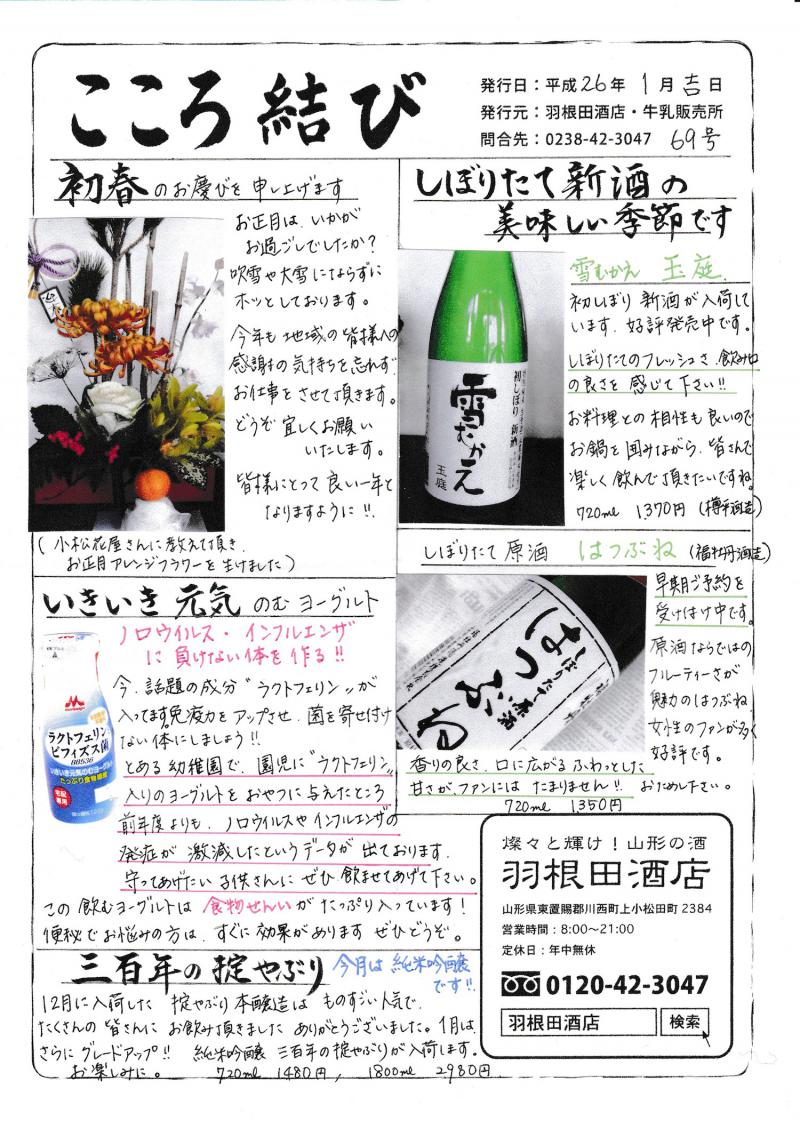 こころ結び
発行日：平成26年 1月吉日
発行元：羽根田酒店・牛乳販売所
問合先：0238-42-3047 69号
初春のお慶びを申し上げます
お正月は、いかが
お過ごしでしたか？
吹雪や大雪にならずに
ホッとしております。
今年も地域の皆様への
感謝の気持ちを忘れず
お仕事をさせて頂きます。
どうぞ宜しくお願い
いたします。
皆様にとって良い一年と
なりますように!!
(小松花屋さんに教えて頂き、
お正月アレンジフラワーを生けました)
しぼりたて新酒の
美味しい季節です
雪むかえ 玉庭
初しぼり新酒が入荷して
います。好評発売中です。
しぼりたてのフレッシュさ、飲み口
の良さを感じて下さい!!
お料理との相性も良いので
お鍋を囲みながら、皆さんで
楽しく飲んで頂きたいですね。
720ml 1370円 (樽平酒造)
初しぼり 新酒
雪むかえ
玉庭
しぼりたて原酒 はつぶね (福牡丹酒造)
早期ご予約を
受けはけ中です。
原酒ならではの
フルーティーさが
魅力のはつぶね
女性のファンが多く
好評です。
しぼりたて原酒
はつぶね
香りの良さ、口に広がるふわっとした
甘さが、ファンにはたまりません!! おためし下さい。
720ml 1350円
いきいき元気 のむヨーグルト
ノロウイルス・インフルエンザ
に負けない体を作る!!
今、話題の成分"ラクトフェリン"が
入ってます。免疫力をアップさせ、菌を寄せ付け
ない体にしましょう!!
とある幼稚園で、園児に"ラクトフェリン"
入りのヨーグルトをおやつに与えたところ
前年度よりも、ノロウイルスやインフルエンザの
発症が激減したというデータが出ております。
守ってあげたい子供さんにぜひ飲ませてあげて下さい。
この飲むヨーグルトは食物せんいがたっぷり入っています！
便秘でお悩みの方は、すぐに効果があります ぜひどうぞ。
森永
ラクトフェリン
ビフィズス菌
BB536
いきいき元気のむヨーグルト
たっぷり食物繊維
宅配
専用
三百年の掟やぶり 今月は純米吟醸
です!!
12月に入荷した 掟やぶり本醸造は ものすごい人気で、
たくさんの皆さんに お飲み頂きました ありがとうございました。1月は、
さらにグレードアップ!! 純米吟醸 三百年の掟やぶりが入荷します。
お楽しみに。 720ml 1480円, 1800ml 2980円
燦々と輝け！山形の酒
羽根田酒店
山形県東置賜郡川西町上小松田町2384
営業時間：8:00〜21:00
定休日：年中無休
0120-42-3047
羽根田酒店 検索